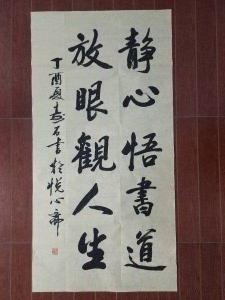 静心悟書道
放眼觀人生
丁酉夏嘉石書於悦心齋